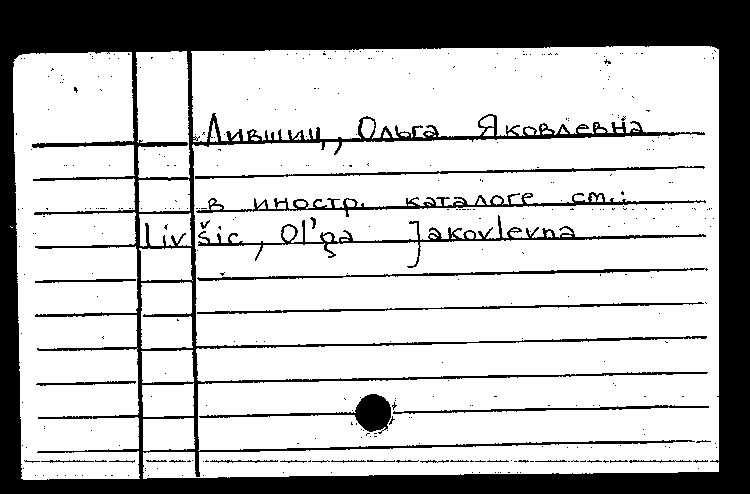 Лившиц, Ольга Яковлевна
в иностр. каталоге см.:
Livšic, Ol'ga Jakovlevna